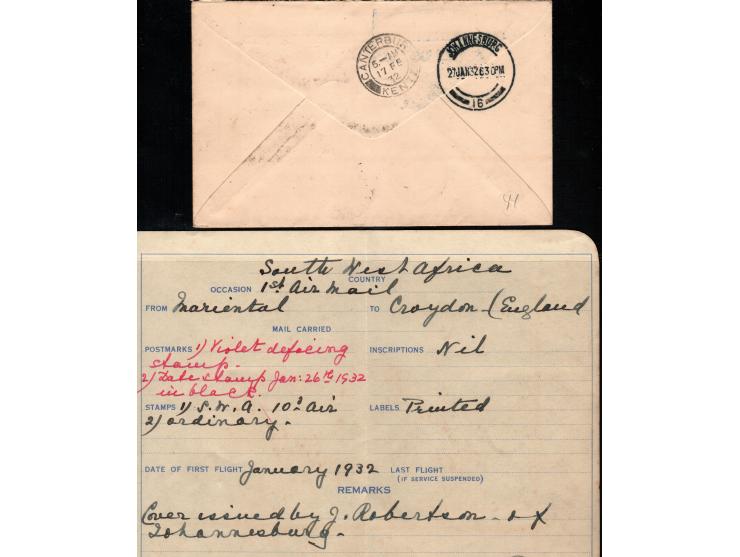 CANTERBURY
17 FE
32
KENT
JOHANNESBURG
27JAN32 6 30PM
16
41
South West Africa
COUNTRY
OCCASION 1st Air Mail
FROM Mariental TO Croydon (England
MAIL CARRIED
POSTMARKS 1) Violet defacing INSCRIPTIONS Nil
stamp.
2) Date stamp Jan: 26th 1932
in black.
STAMPS 1) S.W.A. 10d Air LABELS Printed
2) ordinary.
DATE OF FIRST FLIGHT January 1932 LAST FLIGHT
(IF SERVICE SUSPENDED)
REMARKS
Cover issued by J. Robertson - of
Johannesburg.